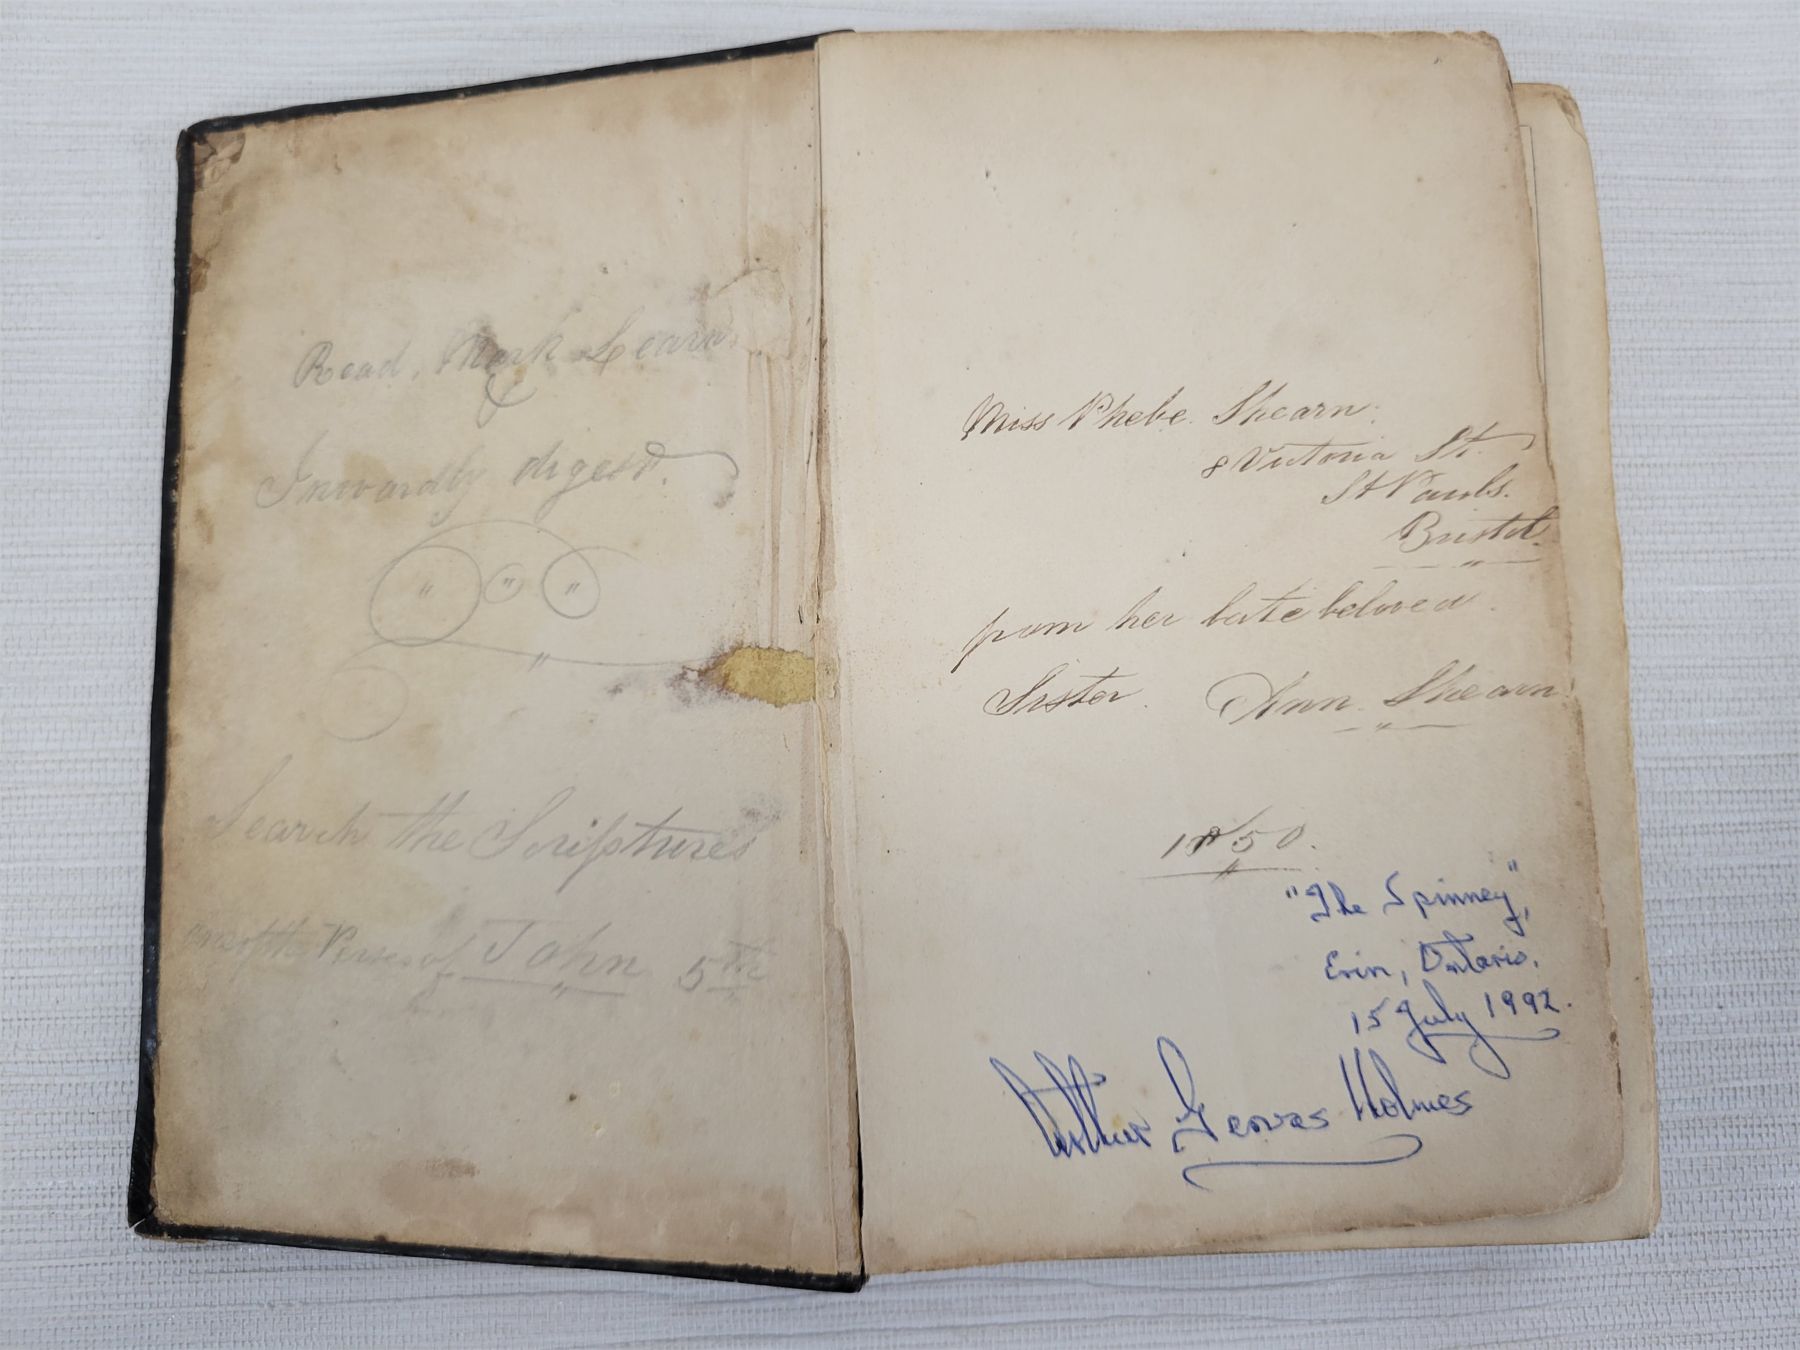 Read, Mark Learn.
&
Inwardly digest.
Search the Scriptures
Verses of John 5th
Miss Phebe Shearn.
8 Victoria St.
St Pauls.
Bristol.
from her late beloved
Sister. Ann Shearn
1850.
"The Spinney",
Erin, Ontario.
15 July 1992.
Arthur Gervas Holmes